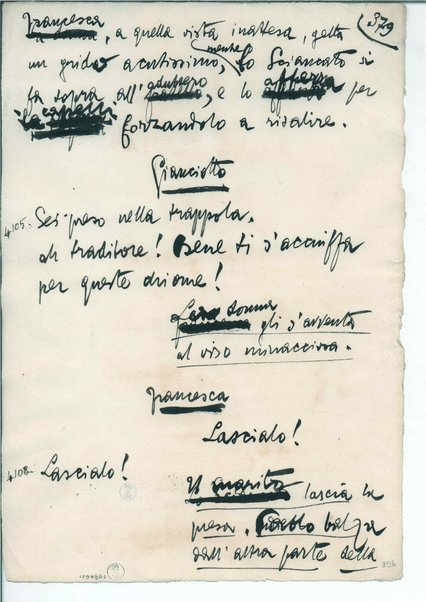 379
Francesca
, a quella vista inattesa, getta
un grido acutissimo, mentre lo Sciancato si
fa sopra all'adultero, e lo afferra per
i capelli forzandolo a risalire.
Gianciotto
4105. Sei preso nella trappola,
ah traditore! Bene ti s'acciuffa
per queste chiome!
La donna
gli s'avventa
al viso minacciosa.
Francesca
Lascialo!
4108. Lascialo!
Il marito lascia la
presa. Paolo balza
dall'altra parte della
396